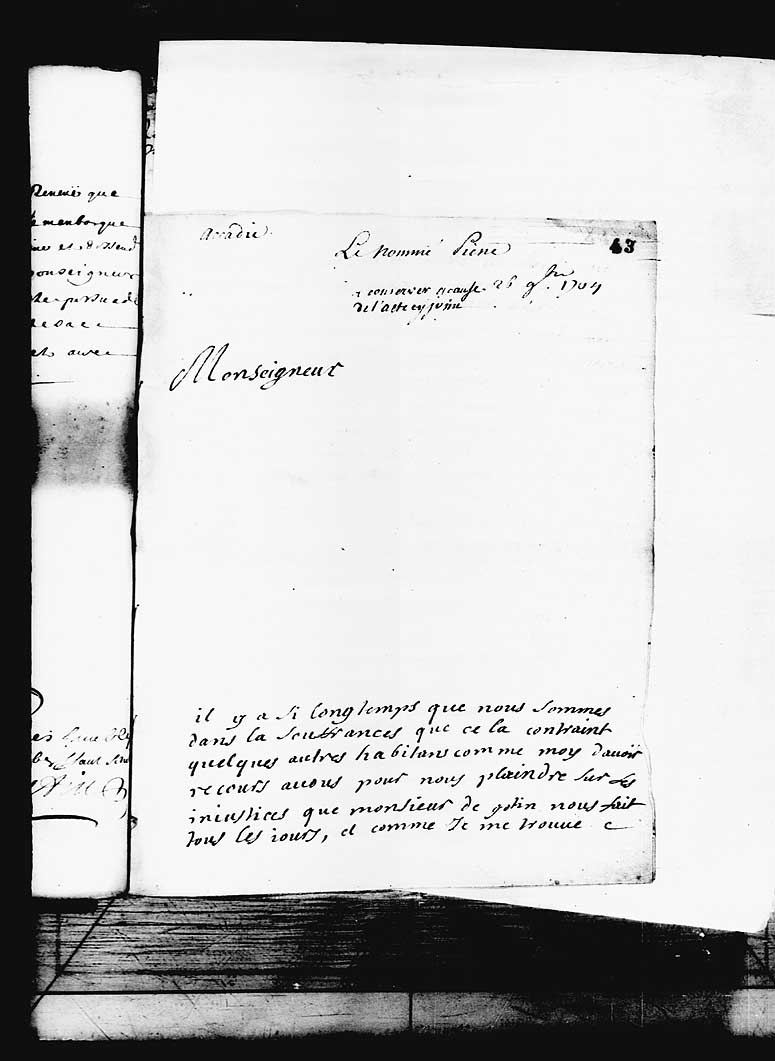 Reneuis que
menbarque
onseigneur
de persuade
et avec
accadie.
Le nommé Piéne
43
a conserver a cause 26 9bre 1704
de l'acte cy joint
Monseigneur
il y a si longtemps que nous sommes
dans la souffrances que ce la contraint
quelques autres habitans comme moy davoir
recours avous pour nous plaindre sur les
iniustices que monsieur de gotin nous fait
tous les iours, et comme Je me trouve